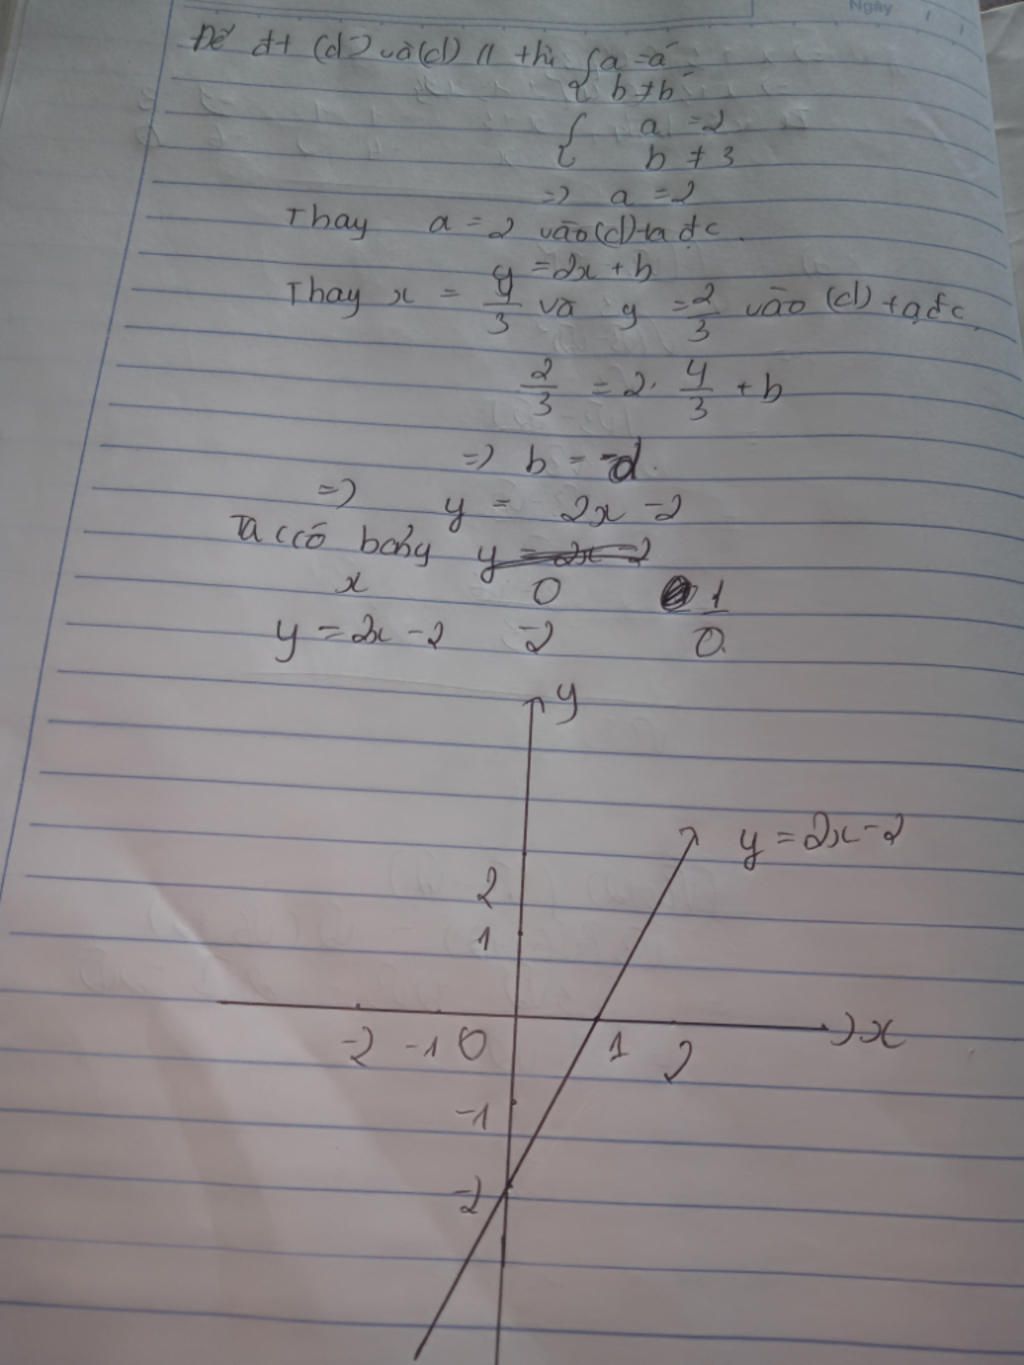 Ngày / /
Để đt (d') và (d) // thì { a = a'
b ≠ b'
{ a = 2
b ≠ 3
=> a = 2
Thay a = 2 vào (d) ta đc
y = 2x + b
Thay x = 4/3 và y = 2/3 vào (d) ta đc
2/3 = 2. 4/3 + b
=> b = -2
=> y = 2x - 2
Ta có bảng y = 2x - 2
x 0 1
y = 2x - 2 -2 0
y
y = 2x - 2
2
1
-2 -1 0 1 2 x
-1
-2